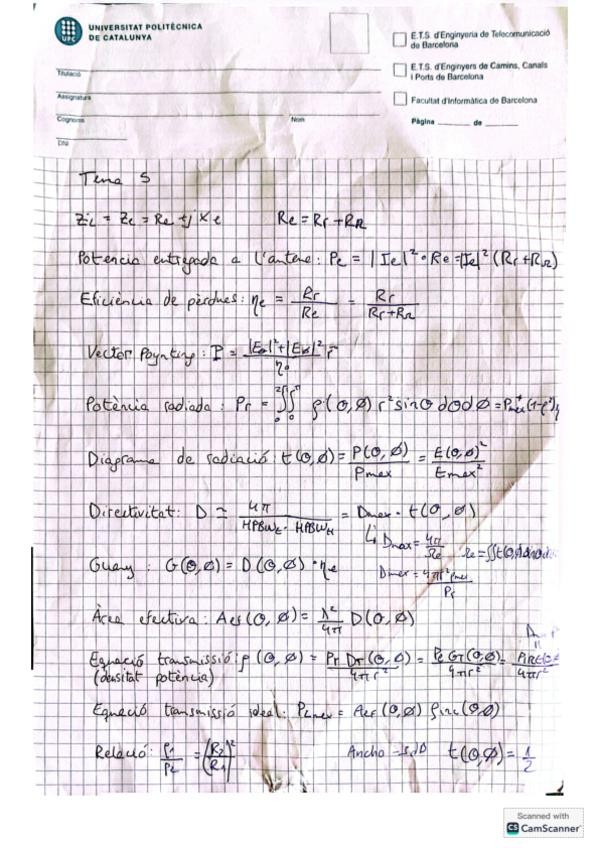 UPC
UNIVERSITAT POLITÈCNICA
DE CATALUNYA
E.T.S. d'Enginyeria de Telecomunicació
de Barcelona
E.T.S. d'Enginyers de Camins, Canals
i Ports de Barcelona
Facultat d'Informàtica de Barcelona
Titulació
Assignatura
Cognoms Nom
Pàgina ______ de ______
DNI
Tema 5
Ze = Re + j Xe Re = Rr + RΩ
Potencia entregada a l'antena: Pe = |Ie|² · Re = |Ie|² (Rr + RΩ)
Eficiència de pèrdues: ηe = Rr/Re = Rr/(Rr + RΩ)
Vector Poynting: P = (|Eθ|² + |Eϕ|²)/η₀ r̂
Potència radiada: Pr = ∫∫ ρ(θ,ϕ) r² sinθ dθ dϕ
Diagrama de radiació: t(θ,ϕ) = P(θ,ϕ)/Pmax = E(θ,ϕ)²/Emax²
Directivitat: D ≃ 4π/(HPBW_E · HPBW_H) = Dmax · t(θ,ϕ)
↳ Dmax = 4π/Ωe
Guany: G(θ,ϕ) = D(θ,ϕ) · ηe
Dmax = 4πr² ρmax/Pr
Àrea efectiva: Aef(θ,ϕ) = λ²/4π D(θ,ϕ)
Equació transmissió: ρ(θ,ϕ) = Pr DT(θ,ϕ)/4πr² = Pe GT(θ,ϕ)/4πr² = PIRE/4πr²
(densitat potència)
Equació transmissió ideal: PLmax = Aef(θ,ϕ) ρinc(θ,ϕ)
Relació: ρ1/ρ2 = (R2/R1)² Ancho -3dB t(θ,ϕ) = 1/2
Scanned with
CS CamScanner